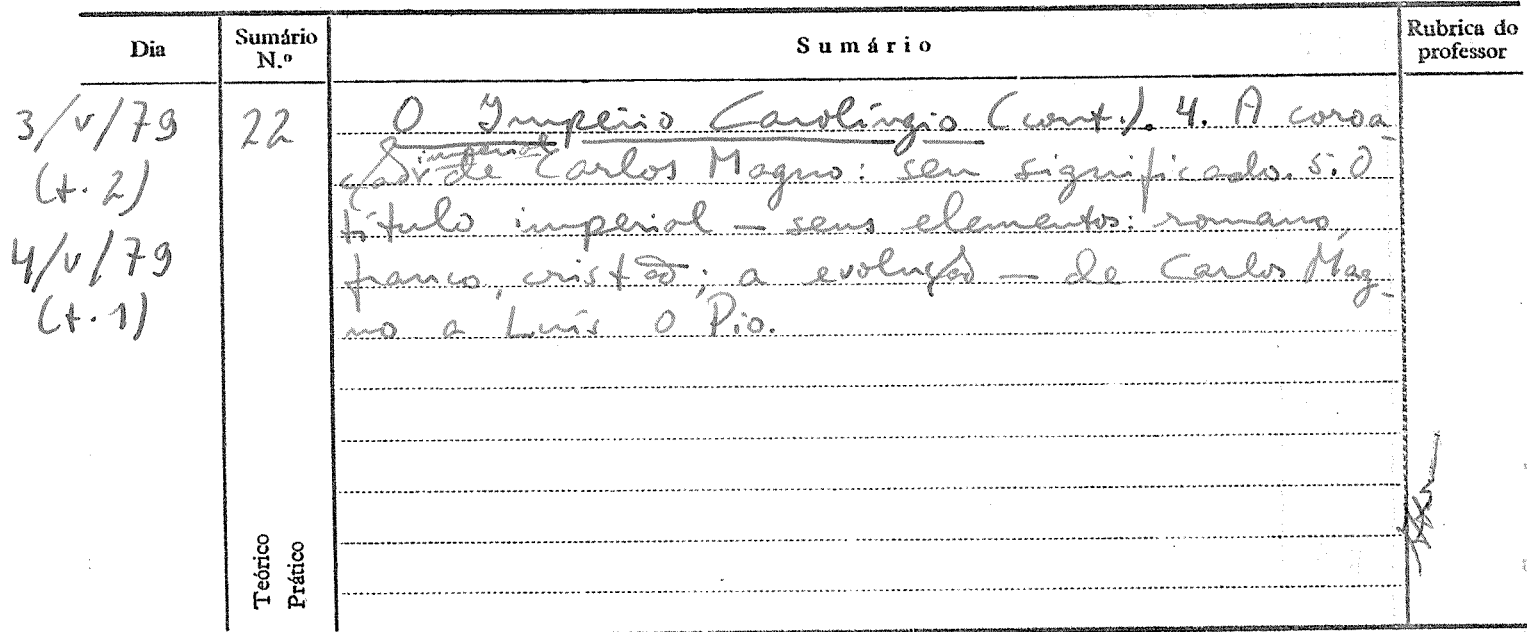 Dia
Sumário N.º
Sumário
Rubrica do professor
3/V/79
(t. 2)
4/V/79
(t. 1)
22
O Império Carolíngio (cont.). 4. A coroa-
ção imperial de Carlos Magno: seu significado. 5. O
título imperial – seus elementos: romano,
franco, cristão; a evolução – de Carlos Mag-
no a Luís o Pio.
Teórico
Prático